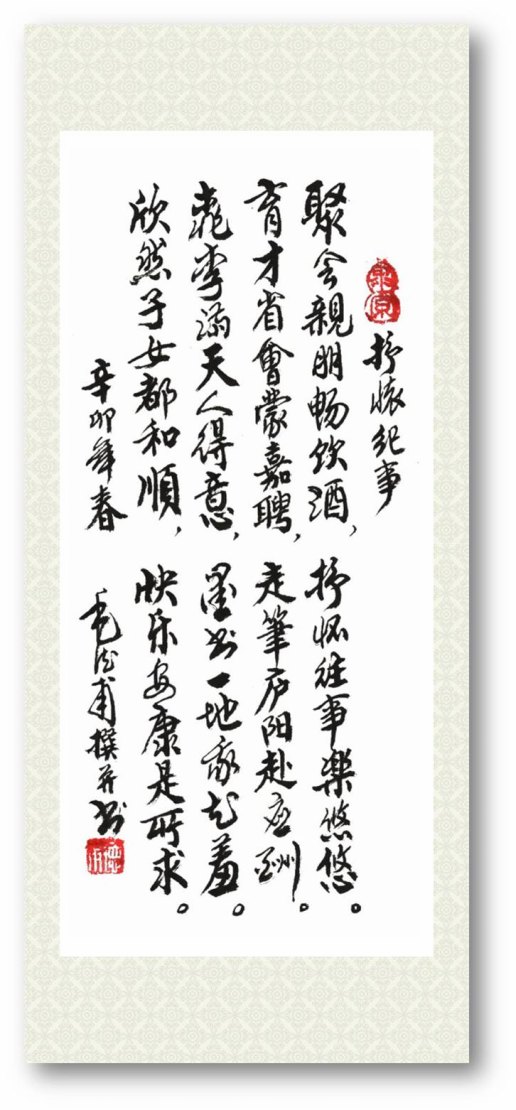 抒懷纪事
聚会親朋畅饮酒,抒怀往事樂悠悠。
育才省會蒙嘉聘,走筆庐阳赴应酬。
桃李满天人得意,墨书一地我羞。
欣然子女都和順,快乐安康是所求。
辛卯年春 毛甫撰并书